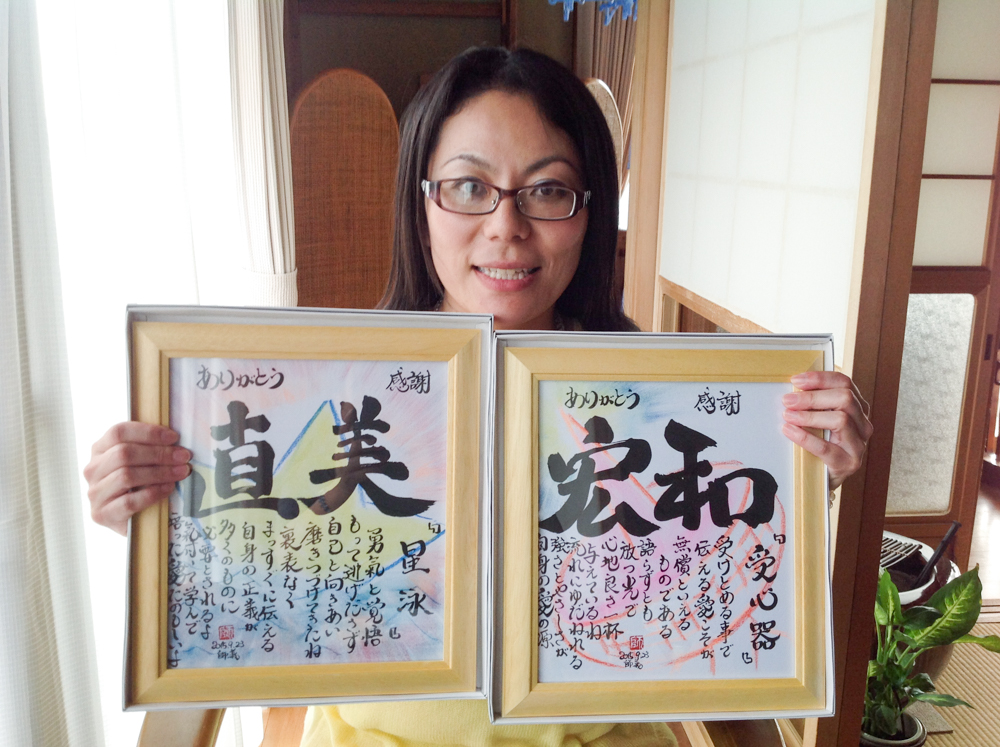 ありがとう
感謝
直美
『星泳』
勇氣と覚悟
もって逃げださず
自己と向きあい
磨きつづけてきたね
裏表なく
まっすぐに伝える
自身の正義が
多くのものに
必要とされるよ
気付いて学んで
2015.9.23
ありがとう
感謝
宏和
『受心器』
受けとめる事で
伝える愛こそが
無償といえる
ものである
語らずとも
放つ光で
心地良さ一杯
与えているね
流れにゆだねれる
強さとやさしさが
自身の愛の源
2015.9.23